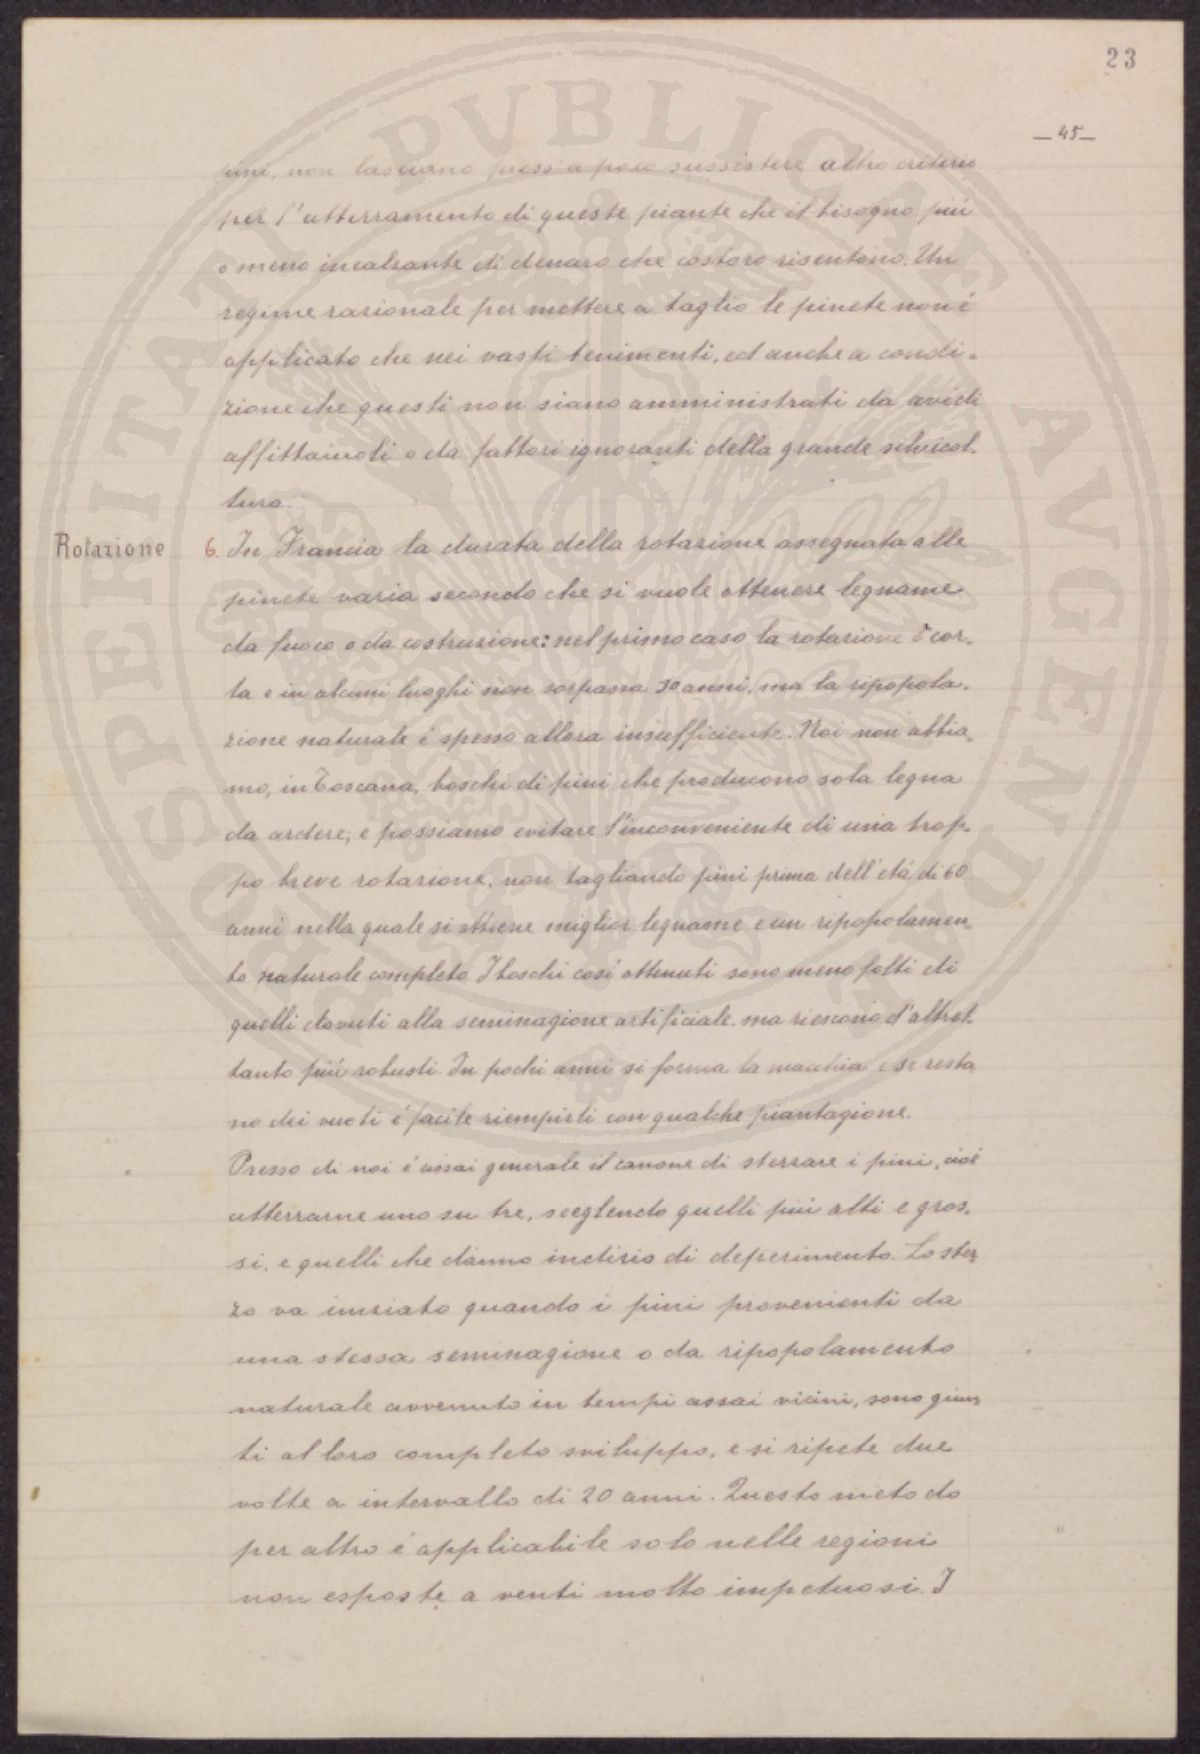 23
— 45 —
pini, non lasciano press'a poco sussistere altro criterio
per l'atterramento di queste piante che il bisogno più
o meno incalzante di denaro che costoro risentono. Un
regime razionale per mettere a taglio le pinete non é
applicato che nei vasti tenimenti, ed anche a condi-
zione che questi non siano amministrati da avidi
affittaiuoli o da fattori ignoranti della grande selvicol-
tura.
Rotazione
6. In Francia la durata della rotazione assegnata alle
pinete varia secondo che si vuole ottenere legname
da fuoco o da costruzione: nel primo caso la rotazione é cor-
ta e in alcuni luoghi non sorpassa 30 anni, ma la ripopola-
zione naturale é spesso allora insufficiente. Noi non abbia-
mo, in Toscana, boschi di pini che producono sola legna
da ardere; e possiamo evitare l'inconveniente di una trop-
po breve rotazione, non tagliando pini prima dell'etá di 60
anni nella quale si ottiene miglior legname e un ripopolamen-
to naturale completo. I boschi cosí ottenuti sono meno folti di
quelli dovuti alla seminagione artificiale, ma riescono d'altret-
tanto piú robusti. In pochi anni si forma la macchia e se resta
no dei vuoti é facile riempirli con qualche piantagione.
Presso di noi é assai generale il canone di sterzare i pini, cioé
atterrarne uno su tre, sceglendo quelli piú alti e gros-
si, e quelli che danno indizio di deperimento. Lo ster
zo va iniziato quando i pini provenienti da
una stessa seminagione o da ripopolamento
naturale avvenuto in tempi assai vicini, sono giun
ti al loro completo sviluppo, e si ripete due
volte a intervallo di 20 anni. Questo metodo
per altro é applicabile solo nelle regioni
non esposte a venti molto impetuosi. I
PROSPERITATI PVBLICAE AVGENDAE